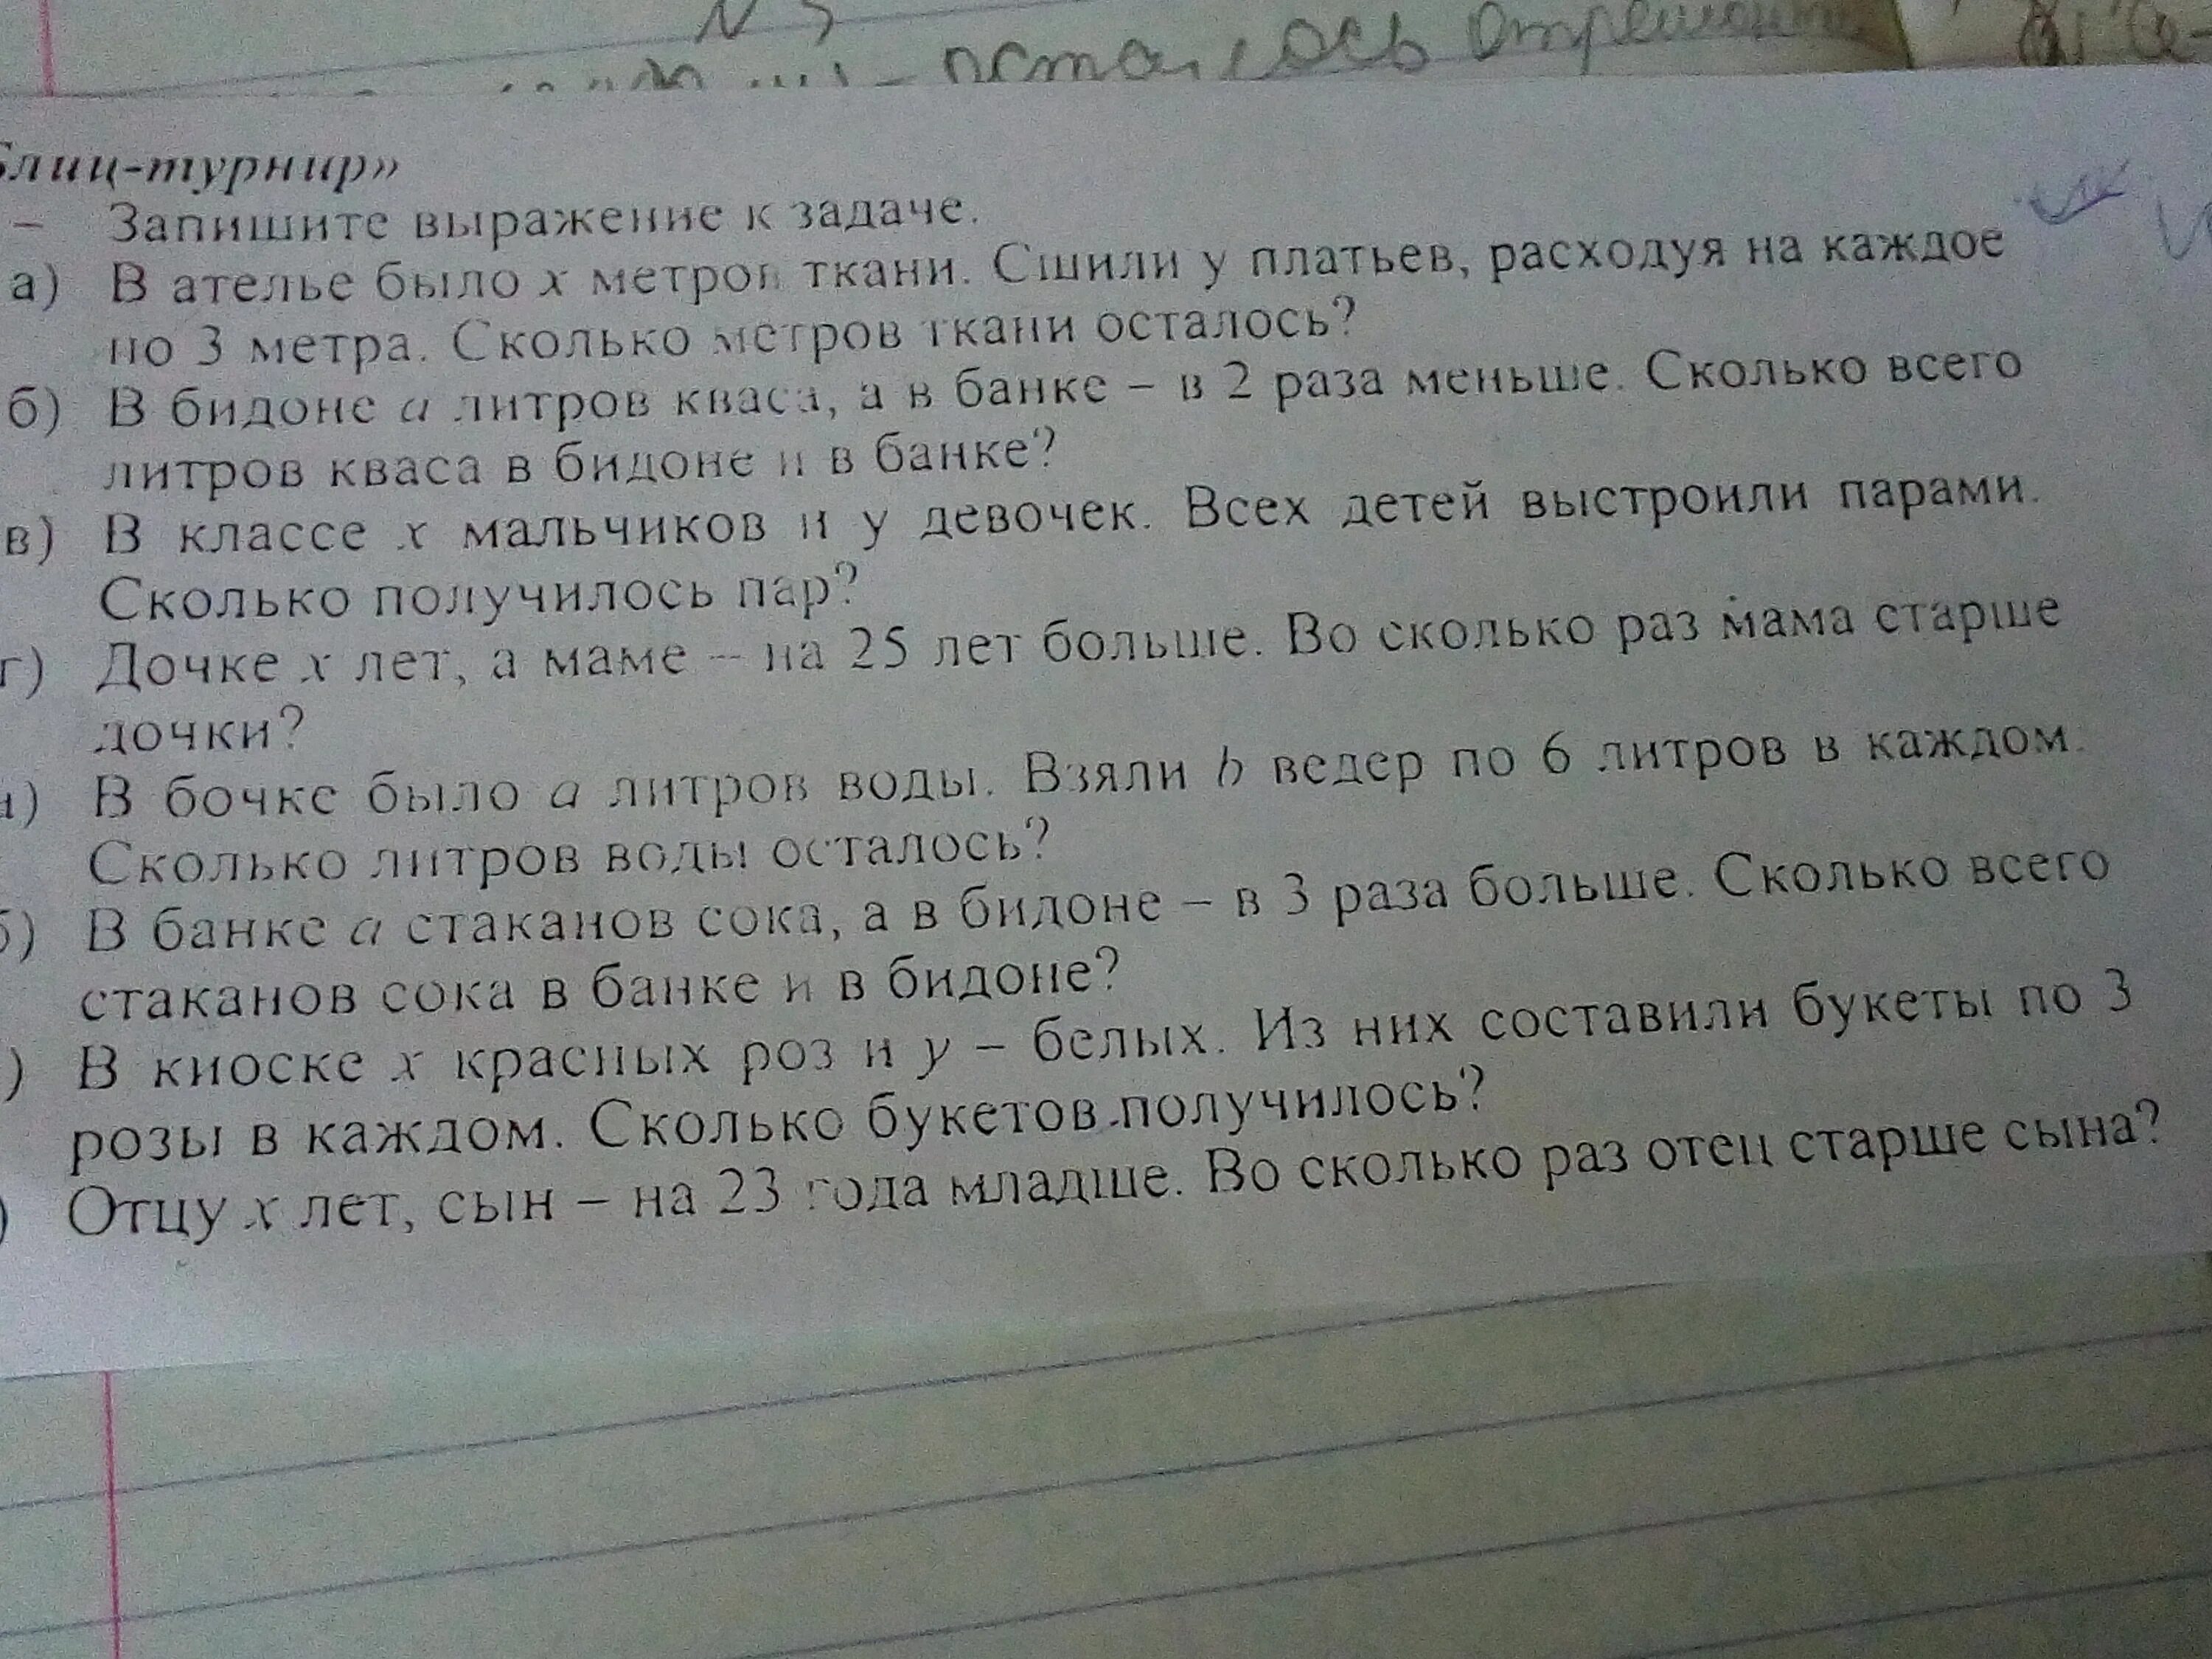 N 5
- осталось отремонт
«Блиц-турнир»
– Запишите выражение к задаче.
а) В ателье было x метров ткани. Сшили у платьев, расходуя на каждое
по 3 метра. Сколько метров ткани осталось?
б) В бидоне a литров кваса, а в банке – в 2 раза меньше. Сколько всего
литров кваса в бидоне и в банке?
в) В классе x мальчиков и у девочек. Всех детей выстроили парами.
Сколько получилось пар?
г) Дочке x лет, а маме – на 25 лет больше. Во сколько раз мама старше
дочки?
а) В бочке было a литров воды. Взяли b ведер по 6 литров в каждом.
Сколько литров воды осталось?
б) В банке a стаканов сока, а в бидоне – в 3 раза больше. Сколько всего
стаканов сока в банке и в бидоне?
) В киоске x красных роз и y – белых. Из них составили букеты по 3
розы в каждом. Сколько букетов получилось?
) Отцу x лет, сын – на 23 года младше. Во сколько раз отец старше сына?